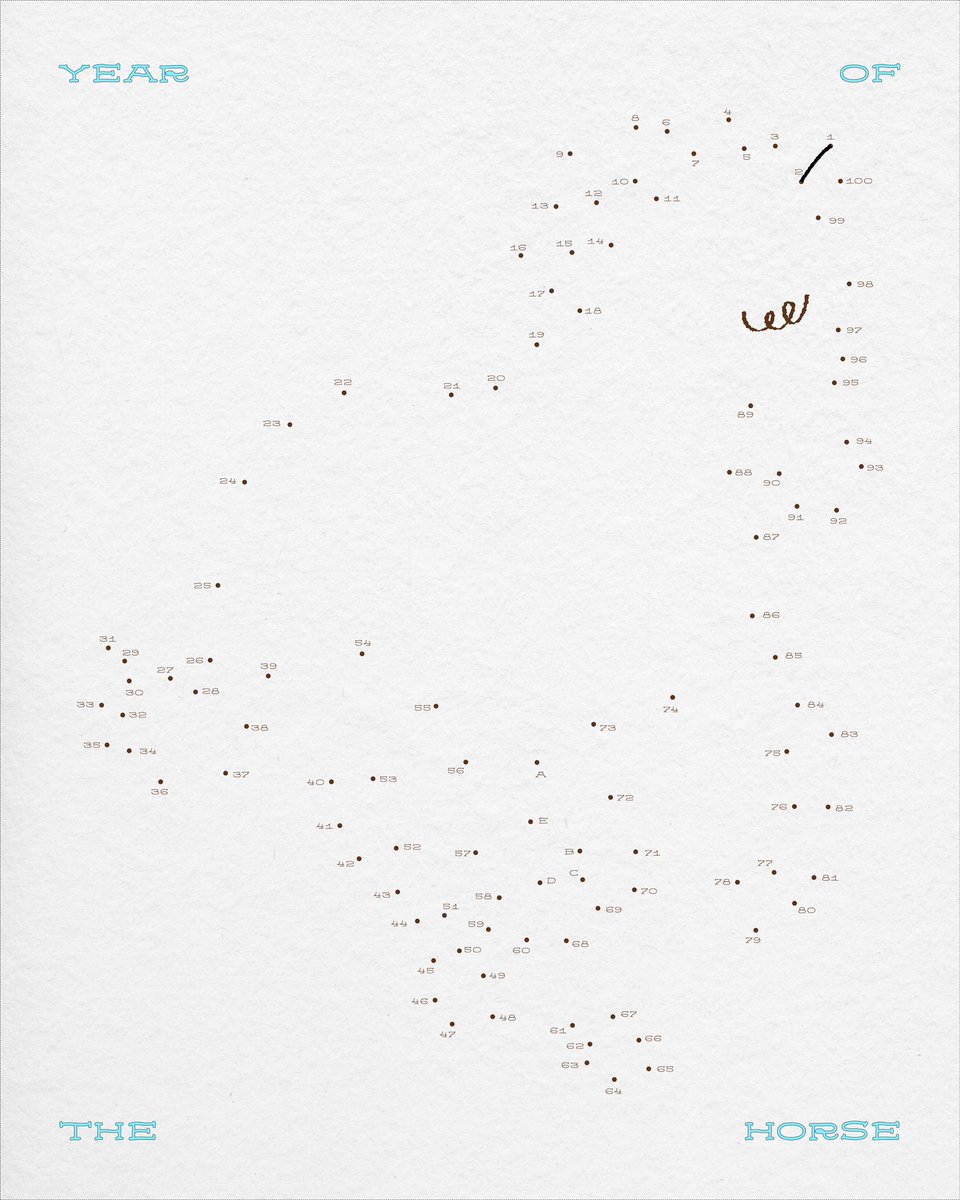 YEAR OF
4
8 6
1
3
9 7 5
2
10 100
12 11
13
99
14
16 15
98
17
18
97
19
96
20 95
22 21
89
23
94
93
24 88
90
91 92
87
25
86
31 54
29 26 85
27 39
30 28
33 32 55 74 84
38 73 83
35 34 75
37 56 A
36 40 53
72
76 82
41 E
52 57 B 71
42
77
C 78 81
43 58 D 70
51 69 80
44 59
60 68 79
50
45
49
46
48 67
47 61
66
62
63 65
64
THE HORSE